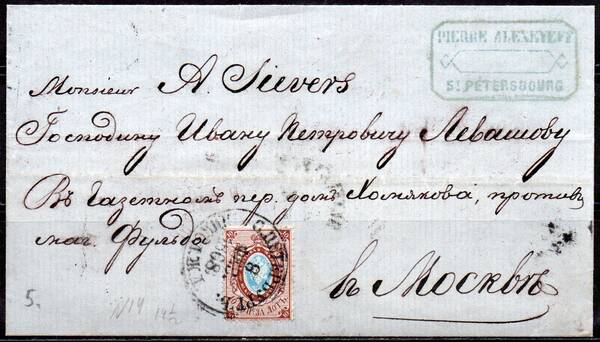 PIERRE ALEXEYEFF
St. PETERSBOURG
Monsieur A. Sievers
Господину Ивану Петровичу Левашову
Въ Газетномъ пер. домъ Хомякова, противъ
маг. Фульда
въ Москвѣ
С.ПЕТЕРБУРГЪ
8
ЗА ЛОТЪ
5.
№14
14½